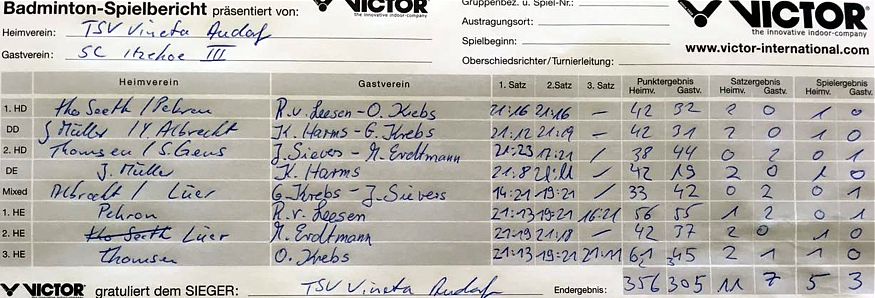 Badminton-Spielbericht präsentiert von: VICTOR the innovative indoor-company
Gruppenbez. u. Spiel-Nr.:
Austragungsort:
Spielbeginn:
Oberschiedsrichter/Turnierleitung:
VICTOR the innovative indoor-company
www.victor-international.com
Heimverein: TSV Vineta Audorf
Gastverein: SC Itzehoe III
Heimverein Gastverein 1. Satz 2. Satz 3. Satz Punktergebnis Satzergebnis Spielergebnis
Heimv. Gastv. Heimv. Gastv. Heimv. Gastv.
1. HD tho Seeth / Pehron R. v. Leesen - O. Krebs 21:16 21:16 – 42 32 2 0 1 0
DD J. Müller / Y. Albrecht K. Harms - G. Krebs 21:12 21:19 – 42 31 2 0 1 0
2. HD Thomsen / S. Gens J. Sievers - M. Erdtmann 21:23 17:21 / 38 44 0 2 0 1
DE J. Müller K. Harms 21:8 21:11 – 42 19 2 0 1 0
Mixed Albrecht / Lüer G. Krebs - J. Sievers 14:21 19:21 / 33 42 0 2 0 1
1. HE Pehron R. v. Leesen 21:13 19:21 16:21 56 55 1 2 0 1
2. HE Lüer M. Erdtmann 21:19 21:18 – 42 37 2 0 1 0
3. HE Thomsen O. Krebs 21:13 19:21 21:11 61 45 2 1 1 0
VICTOR gratuliert dem SIEGER: TSV Vineta Audorf Endergebnis: 356 305 11 7 5 3